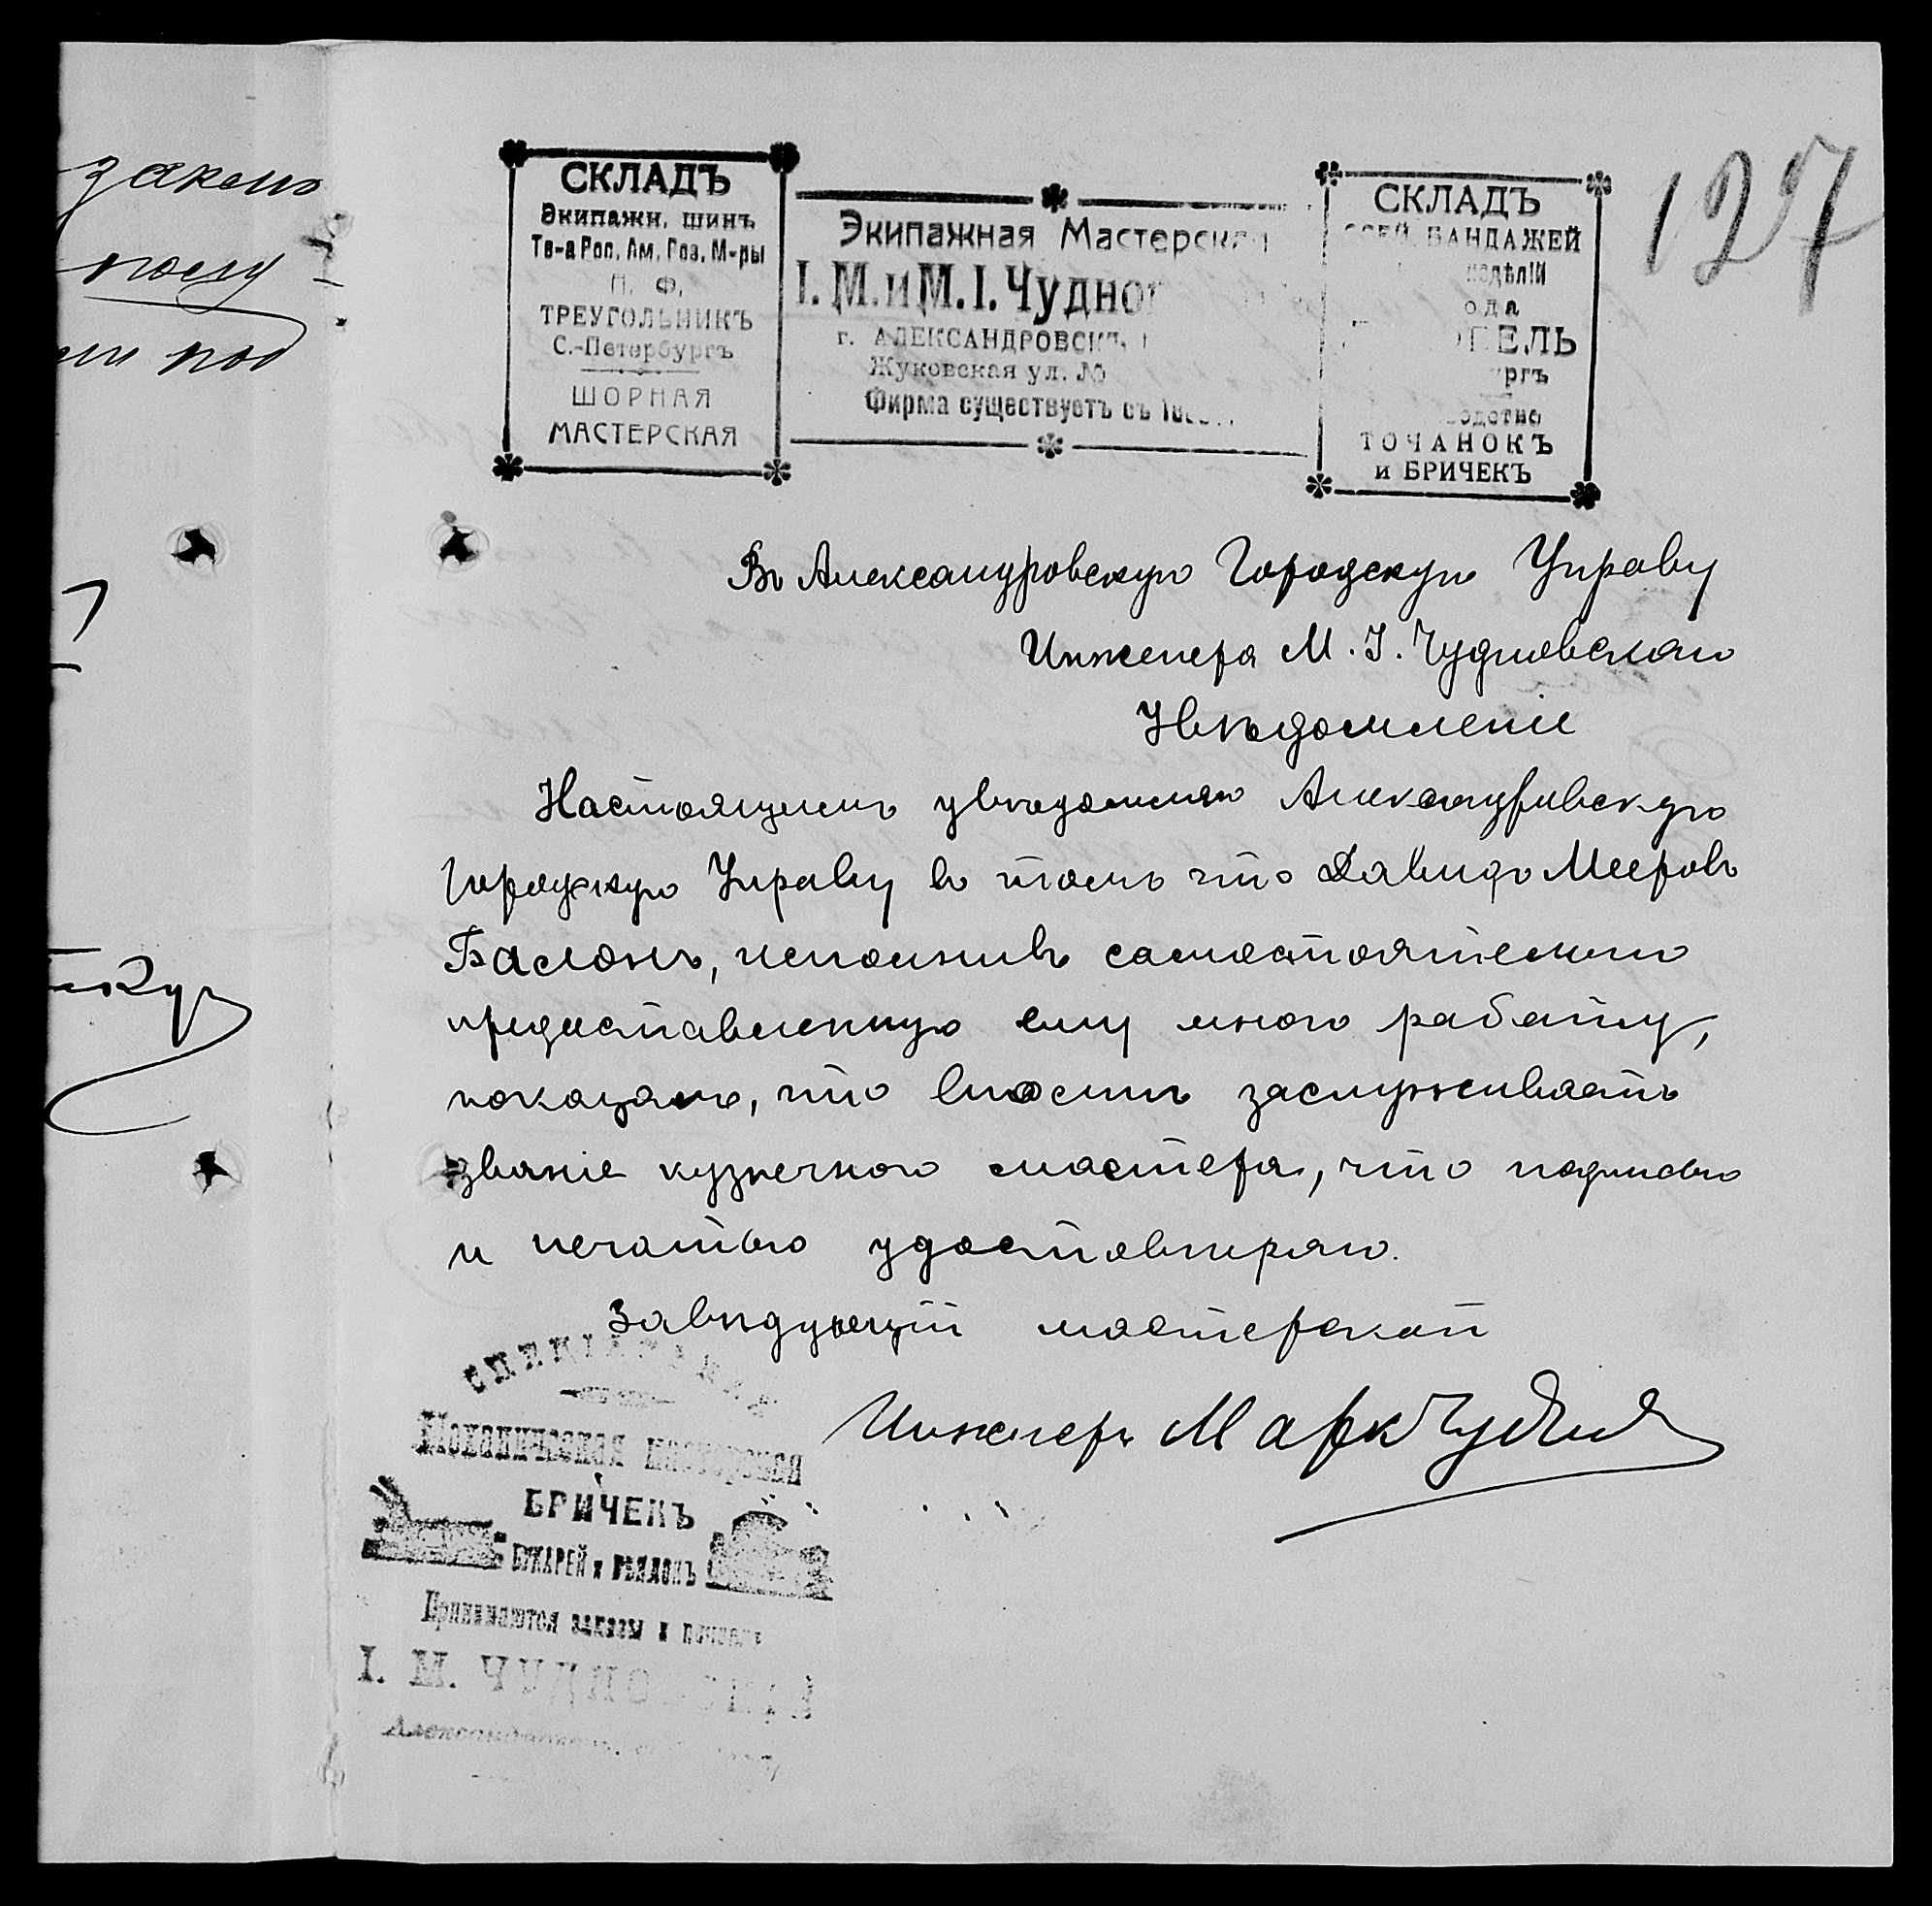 127
СКЛАДЪ
Экипажн. шинъ
Тв-а Рос. Ам. Рез. М-ры
П. Ф.
ТРЕУГОЛЬНИКЪ
С.-Петербургъ
ШОРНАЯ
МАСТЕРСКАЯ
Экипажная Мастерская
І. М. и М. І. Чудно
г. АЛЕКСАНДРОВСКЪ,
Жуковская ул. №
Фирма существуетъ съ
СКЛАДЪ
ОСЕЙ, БАНДАЖЕЙ
ТОЧАНОКЪ
и БРИЧЕКЪ
законъ
под
Въ Александровскую Городскую Управу
Инженера М. І. Чудновскаго
Увѣдомленіе
Настоящимъ увѣдомляю Александровскую
Городскую Управу въ томъ что Давидъ Мееровъ
Балонъ, исполнивъ самостоятельно
предоставленную ему мною работу,
показалъ, что вполнѣ заслуживаетъ
званіе кузнечнаго мастера, что подписью
и печатью удостовѣряю.
Завѣдующій мастерской
Инженеръ Марк Чудн
СПЕЦІАЛЬНАЯ
Механическая мастерская
БРИЧЕКЪ
БУКАРЕЙ и ВѢЯЛОКЪ
Принимаются заказы и
І. М. ЧУДНОВСКАЯ